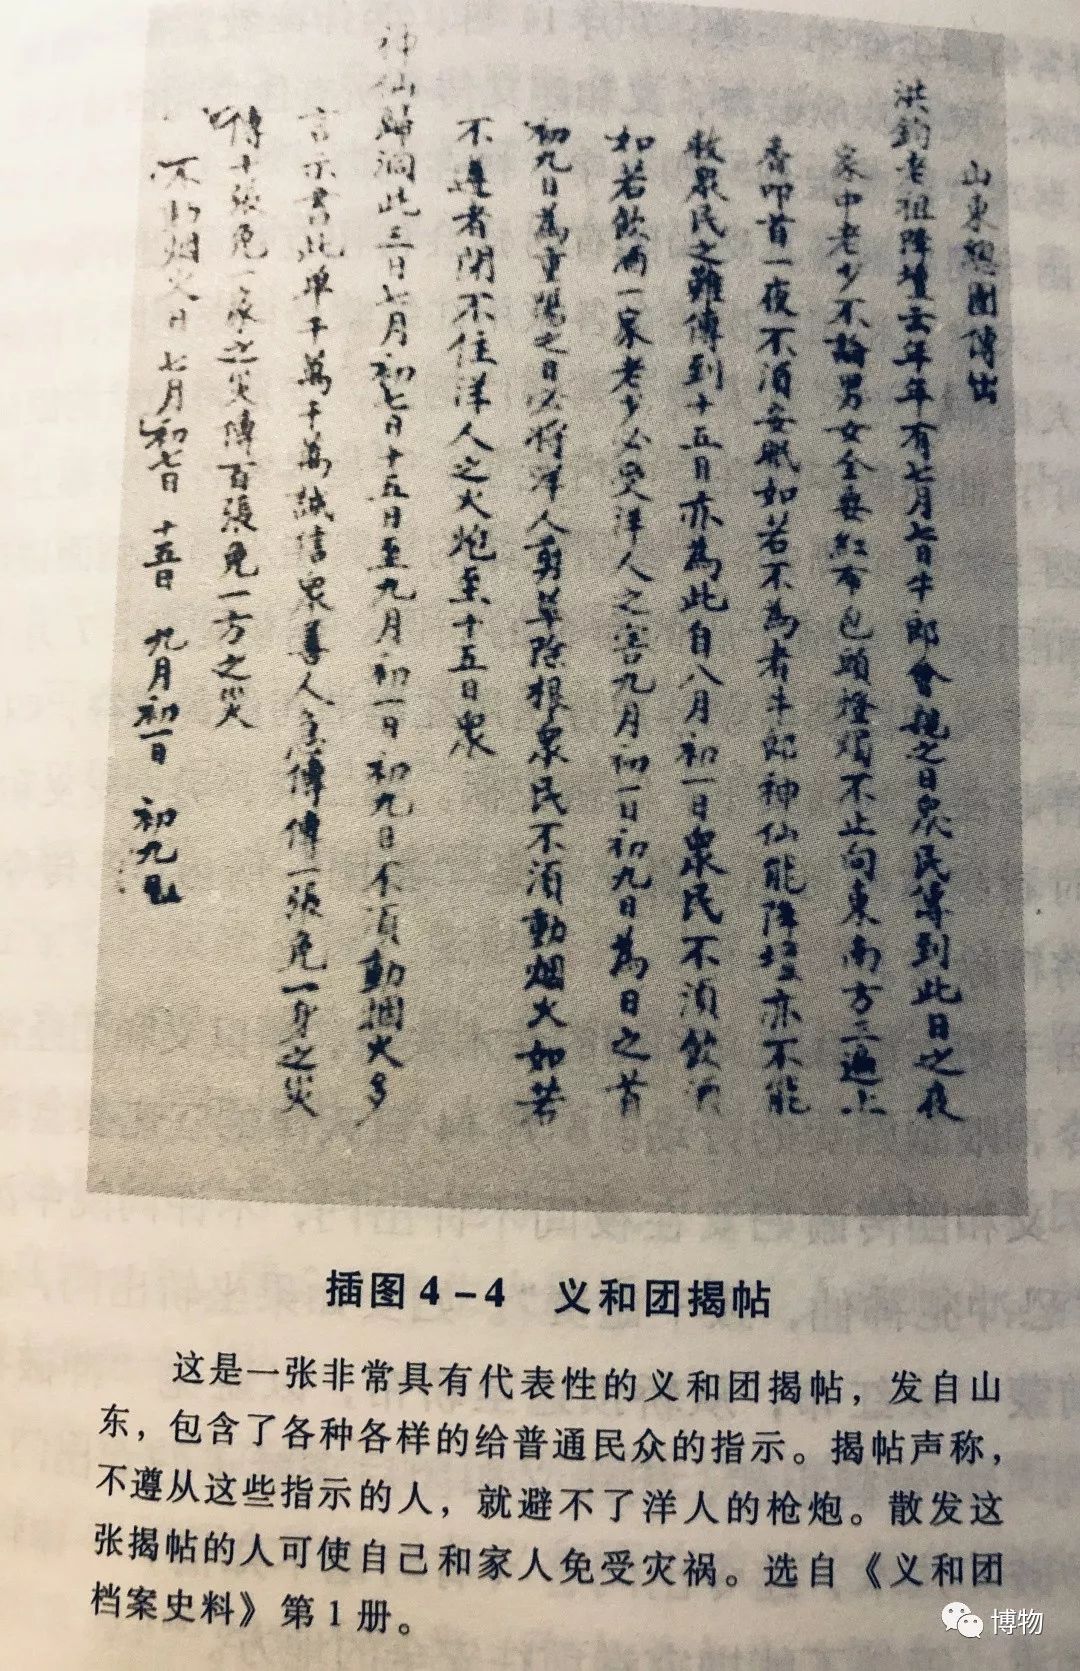 山東總團傳出
洪鈞老祖降壇云年年有七月七日牛郎會親之日衆民傳到此日之夜
家中老少不論男女全要紅布包頭燈燭不止向東南方三遍上
香叩首一夜不須安眠如若不為者牛郎神仙能降壇亦不能
救衆民之難傳到十五日亦為此自八月初一日衆民不須飲酒
如若飲酒一家老少必受洋人之害九月初一日初九日為日之首
初九日為重陽之日必將洋人剪草除根衆民不須動烟火如若
不遵者閉不住洋人之火炮至十五日衆
神仙歸洞此三日七月初七日十五日至九月初一日初九日不須動烟火多
言示書此單千萬千萬誠信衆善人急傳傳一張免一身之災
傳十張免一家之災傳百張免一方之災
不動烟火日 七月初七日 十五日 九月初一日 初九日
插图4-4 义和团揭帖
这是一张非常具有代表性的义和团揭帖，发自山
东，包含了各种各样的给普通民众的指示。揭帖声称，
不遵从这些指示的人，就避不了洋人的枪炮。散发这
张揭帖的人可使自己和家人免受灾祸。选自《义和团
档案史料》第1册。
博物